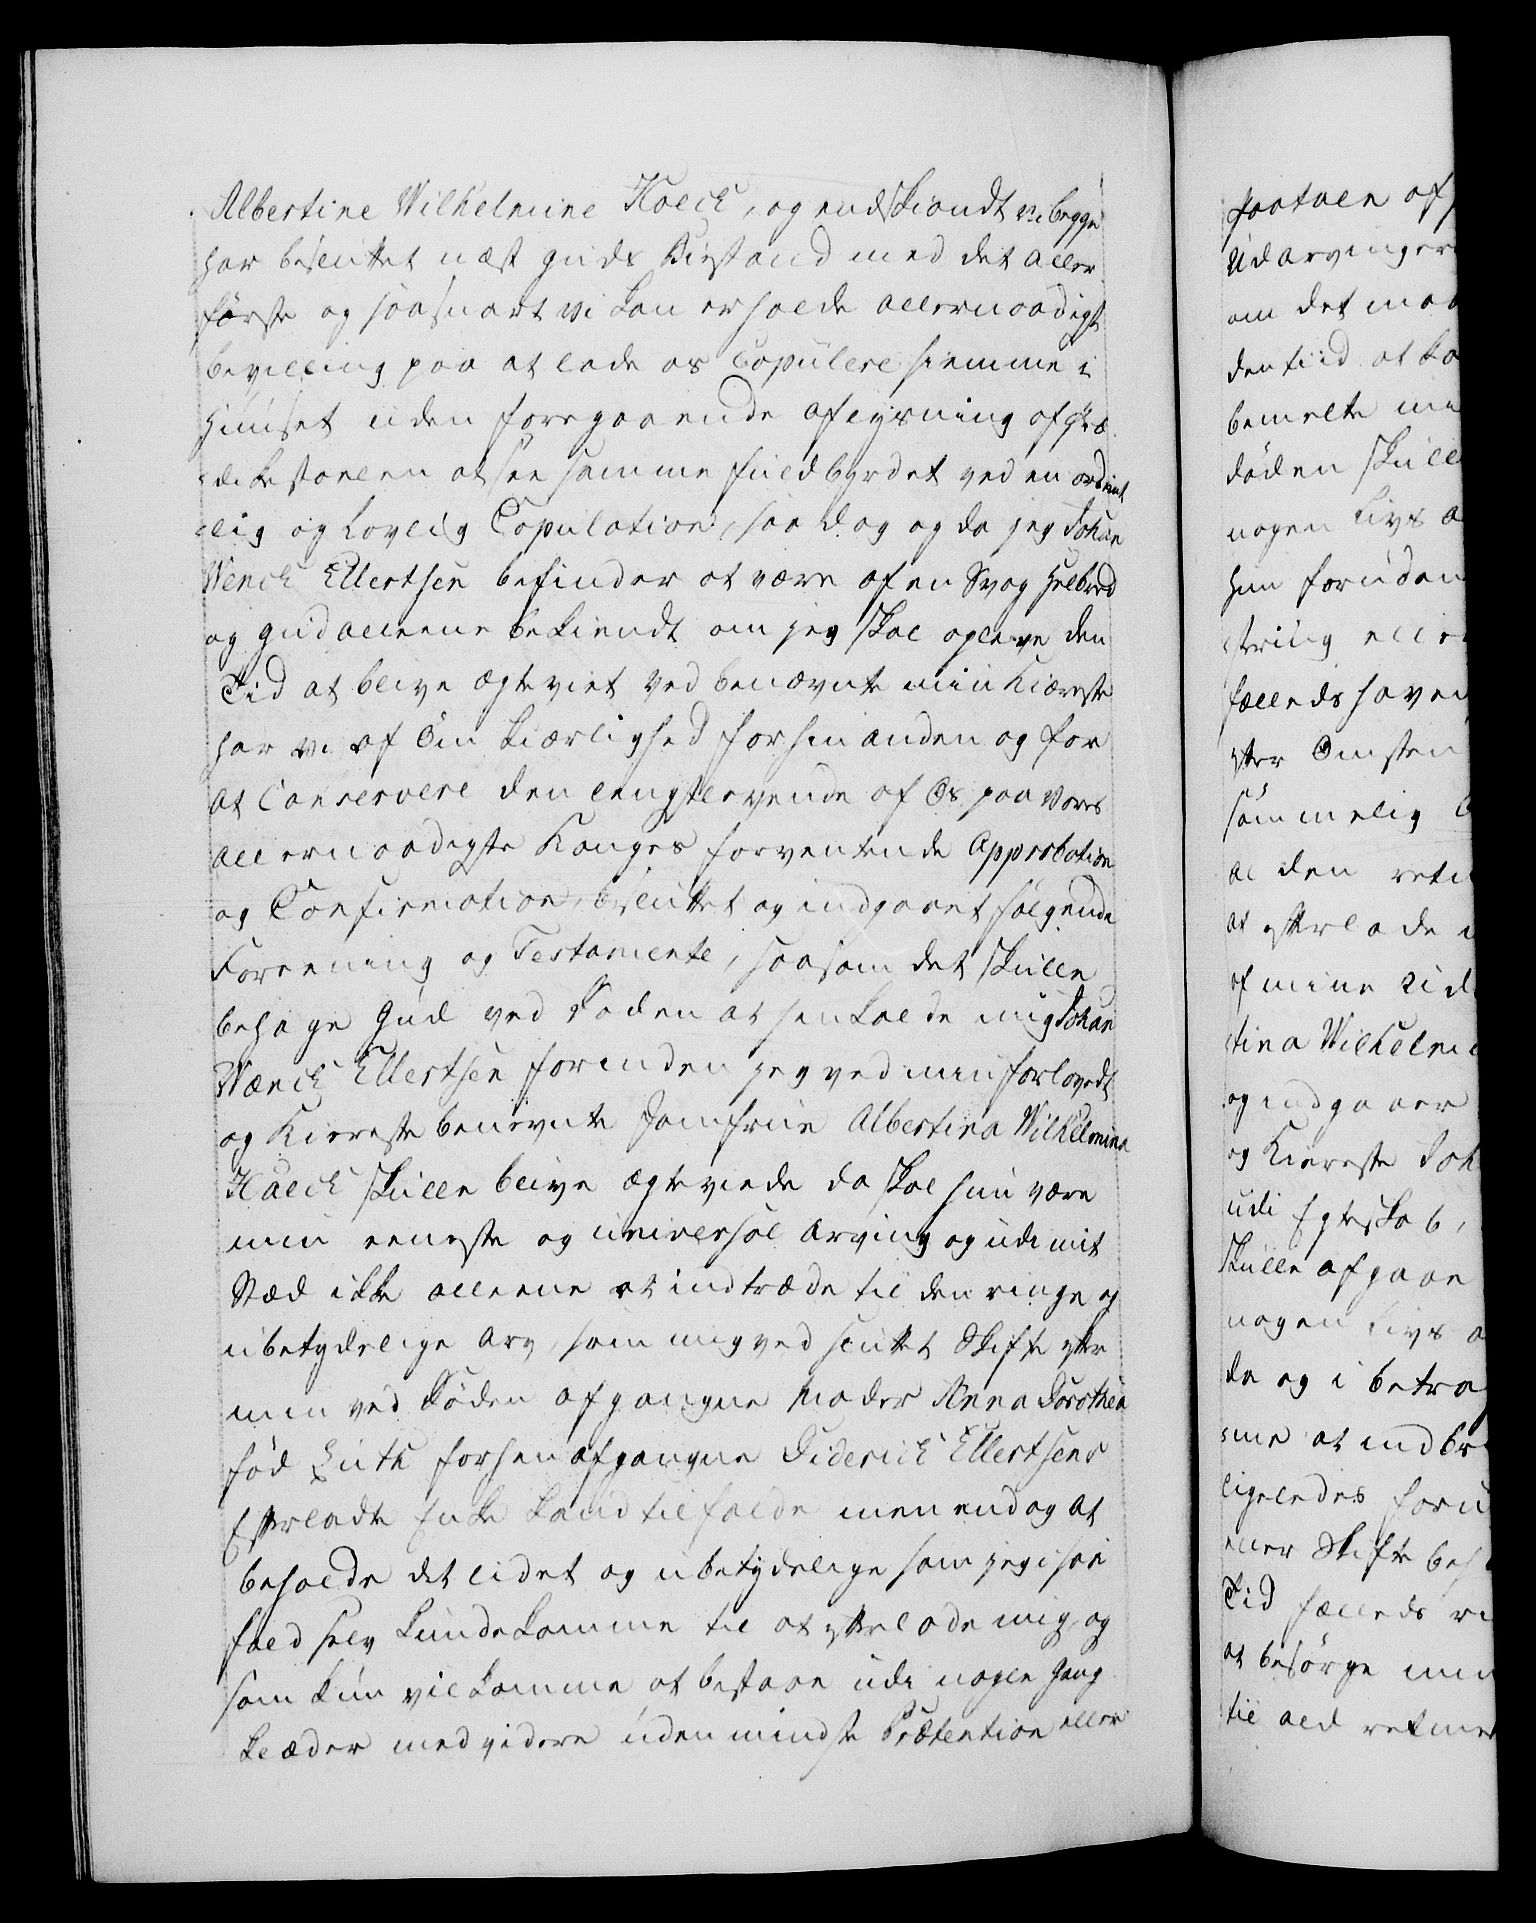 Albertine Wilhelmine Haeck, og endskiøndt vi begge
har besluttet næst Guds Bistand med det aller
første og saasnart vi kan erholde allernaadigst
bevilling paa at lade os Copulere hiemme i
Huuset uden foregaaende aflysning af Præ-
dikestoelen at see samme fuldbyrdet ved en ordent
lig og Lovlig Copulation, saa dog og da jeg Johan
Wenck Ellertsen befinder at være af en Svag Helbred
og Gud alleene bekiendt om jeg skal opleve den
Tid at blive ægteviet ved benævnte min Kiæreste
har vi af Øm Kiærlighed for hinanden og for
at Conservere den længstlevende af Os paa Vores
allernaadigste Konges forventende Approbation
og Confirmation, besluttet og indgaaet følgende
Foreening og Testamente, saasom det skulle
behage Gud ved Døden at henkalde mig Johan
Wænck Ellertsen forinden jeg ved min forlovede
og Kiereste benevnte Jomfrue Albertina Wilhelmina
Haeck skulle blive ægteviede da skal hun være
min eeneste og universal Arving og udi mit
Stæd ikke alleene at indtræde til den ringe og
ubetydelige Arv, som mig ved sluttet Skifte efter
min ved Døden afgangne Moder Anna Dorothea
fød Luth forhen afgangne Diderich Ellertsens
Efterladte Enke kand tilfalde men endog at
beholde det lidet og ubetydelige som jeg i saa
fald selv kunde komme til at efterlade mig, og
som kun vil komme at bestaae udi nogle Gang
klæder med videre uden mindste Prætention eller
paataen af
Udarvinger
om det maa
den tiid at ko
bemelte mi
døden skulle
nogen Livs a
hun foruden
string elle
fælleds haven
efter Omsten
sømmelig
al den reti
at efterlade
af mine Uda
tina Wilhelmi
og indgaaer
og Kiereste Joh
udi Egteskab,
skulle afgaae
nogen Livs a
da og i betra
me at indbr
ligeledes foru
ener Skifte beh
Tid fælleds
at besørge min
til ald retmes